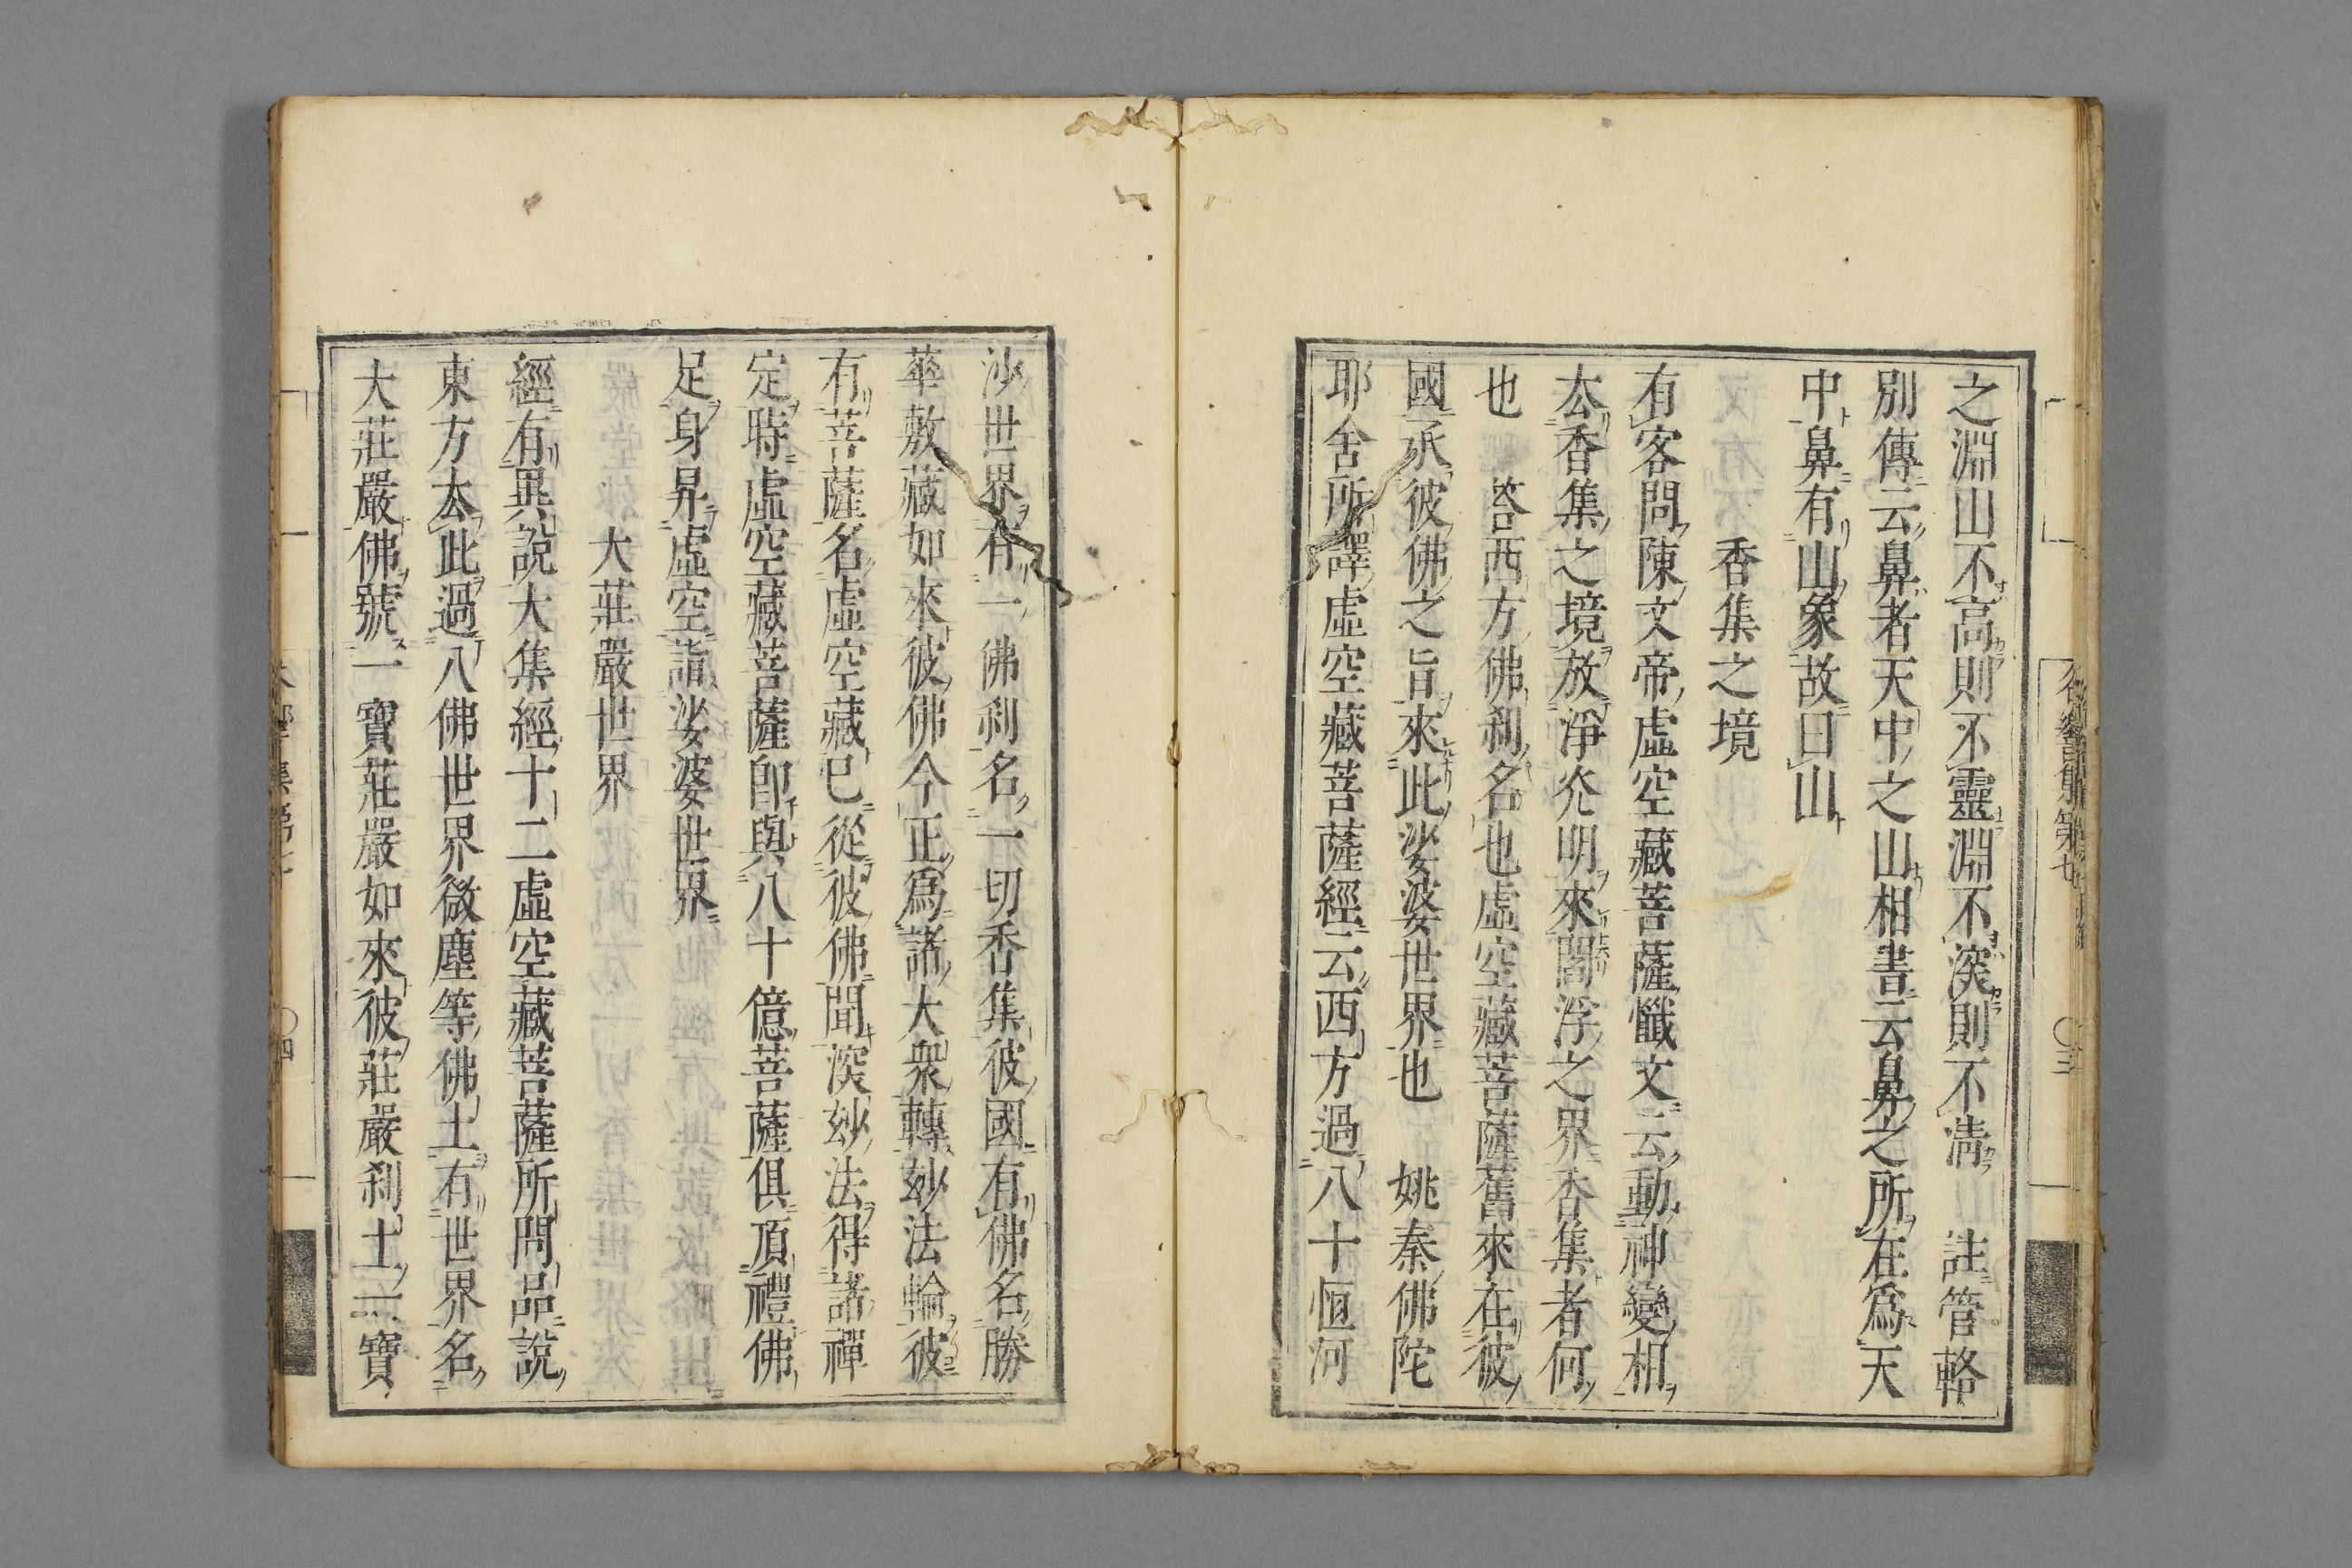 之淵山不高則不靈淵不深則不清 註管輅
別傳云鼻者天中之山相書云鼻之所在爲天
中鼻有山象故曰山
香集之境
有客問陳文帝虛空藏菩薩懺文云動神變相
厺香集之境放淨光明來閻浮之界香集者何
也 荅西方佛刹名也虛空藏菩薩舊來在彼
國承彼佛之旨來此娑婆世界也 姚秦佛陀
耶舍所譯虛空藏菩薩經云西方過八十恒河
沙世界有一佛刹名一切香集彼國有佛名勝
華敷藏如來彼佛今正爲諸大衆轉玅法輪彼
有菩薩名虛空藏已從彼佛聞深玅法得諸禪
定時虛空藏菩薩卽與八十億菩薩俱頂禮佛
足身昇虛空詣娑婆世界
大莊嚴世界
經有異說大集經十二虛空藏菩薩所問品說
東方厺此過八佛世界微塵等佛土有世界名
大莊嚴佛號一寶莊嚴如來彼莊嚴刹土二寶